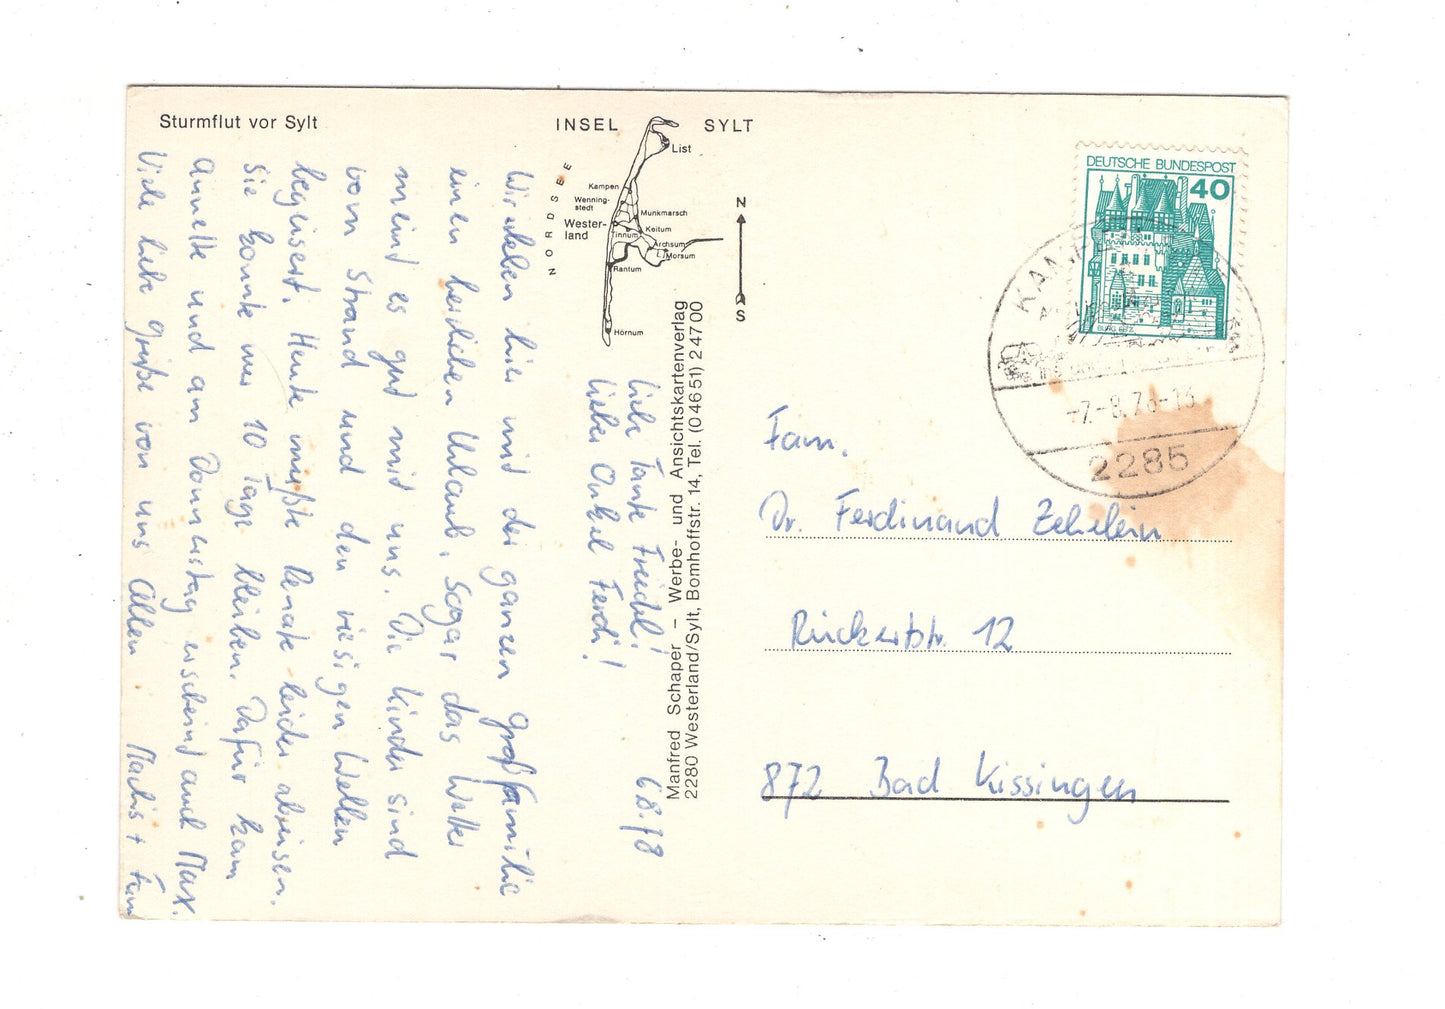 Sturmflut vor Sylt
INSEL SYLT
List
Kampen
Wenning-
stedt
Munkmarsch
Wester-
land
Keitum
Tinnum
Archsum
Morsum
Rantum
Hörnum
NORDSEE
N
S
Manfred Schaper – Werbe- und Ansichtskartenverlag
2280 Westerland/Sylt, Bomhoffstr. 14, Tel. (04651) 24700
6.8.78
Liebe Tante Friedel!
Lieber Onkel Ferdi!
Wir haben hier mit der ganzen Großfamilie
einen herrlichen Urlaub. Sogar das Wetter
meint es gut mit uns. Die Kinder sind
vom Strand und den riesigen Wellen
begeistert. Heute mußte Renate leider abreisen.
Sie konnte nur 10 Tage bleiben. Dafür kam
Annette und am Donnerstag erscheint auch Max.
Viele liebe Grüße von uns Allen
DEUTSCHE BUNDESPOST
40
BURG ELTZ
-7.-8.78-16
2285
Fam.
Dr. Ferdinand Zehelein
Rückertstr. 12
872 Bad Kissingen